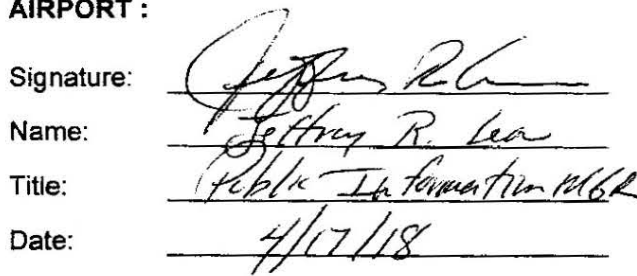 AIRPORT :
Signature: Jeffrey R. Lea
Name: Jeffrey R. Lea
Title: Public Information MGR
Date: 4/17/18